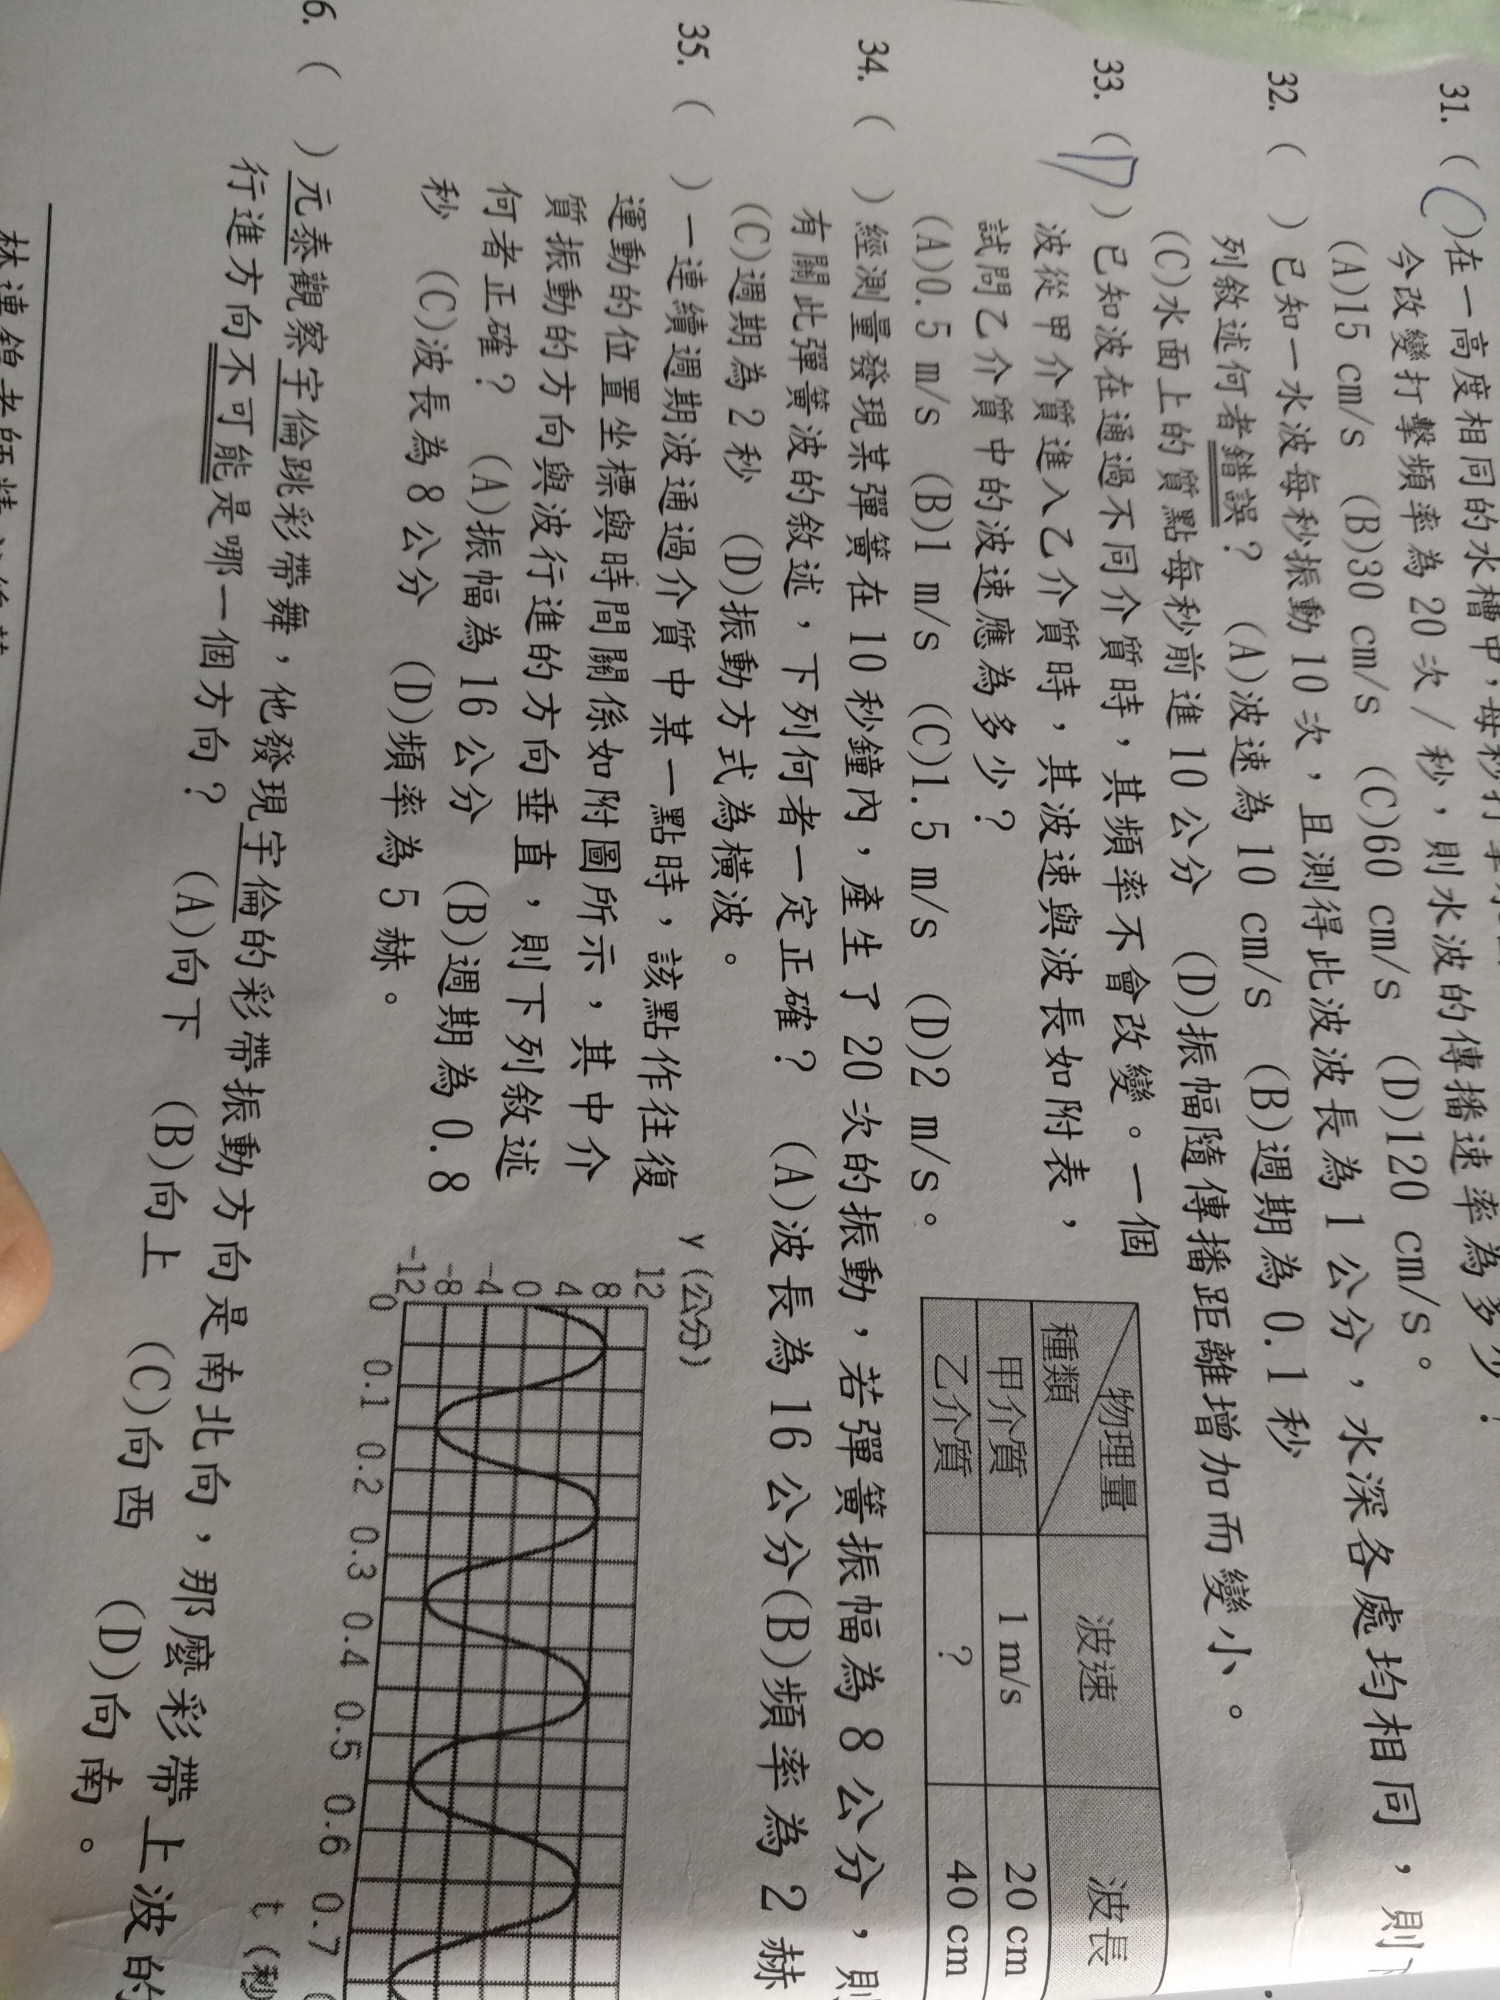 31. (C)在一高度相同的水槽中，每秒打
今改變打擊頻率為 20 次／秒，則水波的傳播速率為多少？
(A)15 cm/s (B)30 cm/s (C)60 cm/s (D)120 cm/s。
32. ( )已知一水波每秒振動 10 次，且測得此波波長為 1 公分，水深各處均相同，則下
列敘述何者錯誤？ (A)波速為 10 cm/s (B)週期為 0.1 秒
(C)水面上的質點每秒前進 10 公分 (D)振幅隨傳播距離增加而變小。
33. (D)已知波在通過不同介質時，其頻率不會改變。一個
波從甲介質進入乙介質時，其波速與波長如附表，
試問乙介質中的波速應為多少？
(A)0.5 m/s (B)1 m/s (C)1.5 m/s (D)2 m/s。
物理量
種類
波速
波長
甲介質 1 m/s 20 cm
乙介質 ? 40 cm
34. ( )經測量發現某彈簧在 10 秒鐘內，產生了 20 次的振動，若彈簧振幅為 8 公分，則
有關此彈簧波的敘述，下列何者一定正確？ (A)波長為 16 公分(B)頻率為 2 赫
(C)週期為 2 秒 (D)振動方式為橫波。
35. ( )一連續週期波通過介質中某一點時，該點作往復
運動的位置坐標與時間關係如附圖所示，其中介
質振動的方向與波行進的方向垂直，則下列敘述
何者正確？ (A)振幅為 16 公分 (B)週期為 0.8
秒 (C)波長為 8 公分 (D)頻率為 5 赫。
y (公分)
12
8
4
0
-4
-8
-12
0 0.1 0.2 0.3 0.4 0.5 0.6 0.7
t (秒
6. ( )元泰觀察宇倫跳彩帶舞，他發現宇倫的彩帶振動方向是南北向，那麼彩帶上波的
行進方向不可能是哪一個方向？ (A)向下 (B)向上 (C)向西 (D)向南。